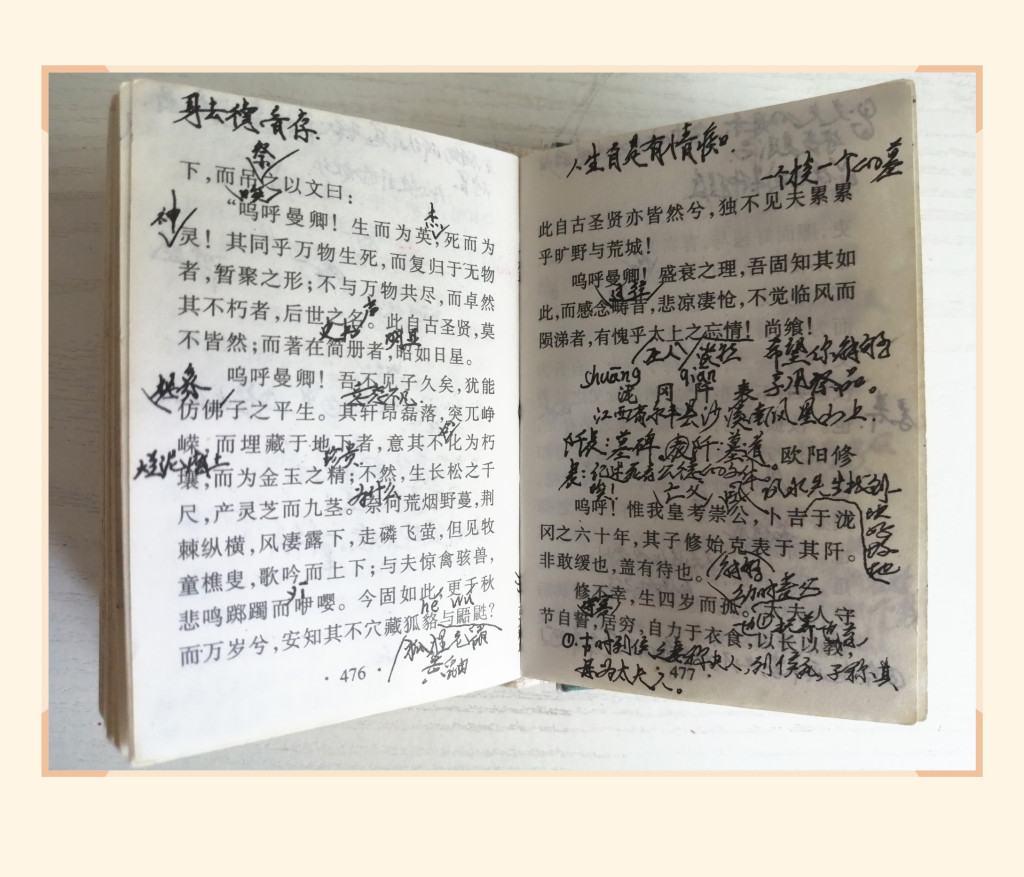 身去德音存.
祭
下,而吊之以文曰:
神
杰
“呜呼曼卿!生而为英,死而为
灵!其同乎万物生死,而复归于无物
者,暂聚之形;不与万物共尽,而卓然
其不朽者,后世之名。此自古圣贤,莫
史书 明显
不皆然;而著在简册者,昭如日星。
想象
呜呼曼卿!吾不见子久矣,犹能
仿佛子之平生。其轩昂磊落,突兀峥
嵘,而埋藏于地下者,意其不化为朽
壤,而为金玉之精;不然,生长松之千
为什么
尺,产灵芝而九茎。奈何荒烟野蔓,荆
棘纵横,风凄露下,走磷飞萤,但见牧
童樵叟,歌吟而上下;与夫惊禽骇兽,
悲鸣踯躅而咿嘤。今固如此,更千秋
yī
hé wú
而万岁兮,安知其不穴藏狐貉与鼯鼪?
· 476 ·
人生自是有情痴.
一个挨一个的墓
此自古圣贤亦皆然兮,独不见夫累累
乎旷野与荒城!
呜呼曼卿!盛衰之理,吾固知其如
此,而感念畴昔,悲凉凄怆,不觉临风而
陨涕者,有愧乎太上之忘情!尚飨!
圣人
希望你能够
shuāng qiān
享用祭品。
泷冈阡表
江西省永丰县沙溪南凤凰山上.
阡表:墓碑。 阡:墓道。
欧阳修
表:纪述死者公德的文体。
风水先生找到一块好墓地
亡父
呜呼!惟我皇考崇公,卜吉于泷
冈之六十年,其子修始克表于其阡。
能够
非敢缓也,盖有待也。
幼时丧父
修不幸,生四岁而孤。太夫人守
节自誓,居穷,自力于衣食,以长以教,
①.古时列侯之妻称夫人,列侯死,子称其
母为太夫人。
· 477 ·